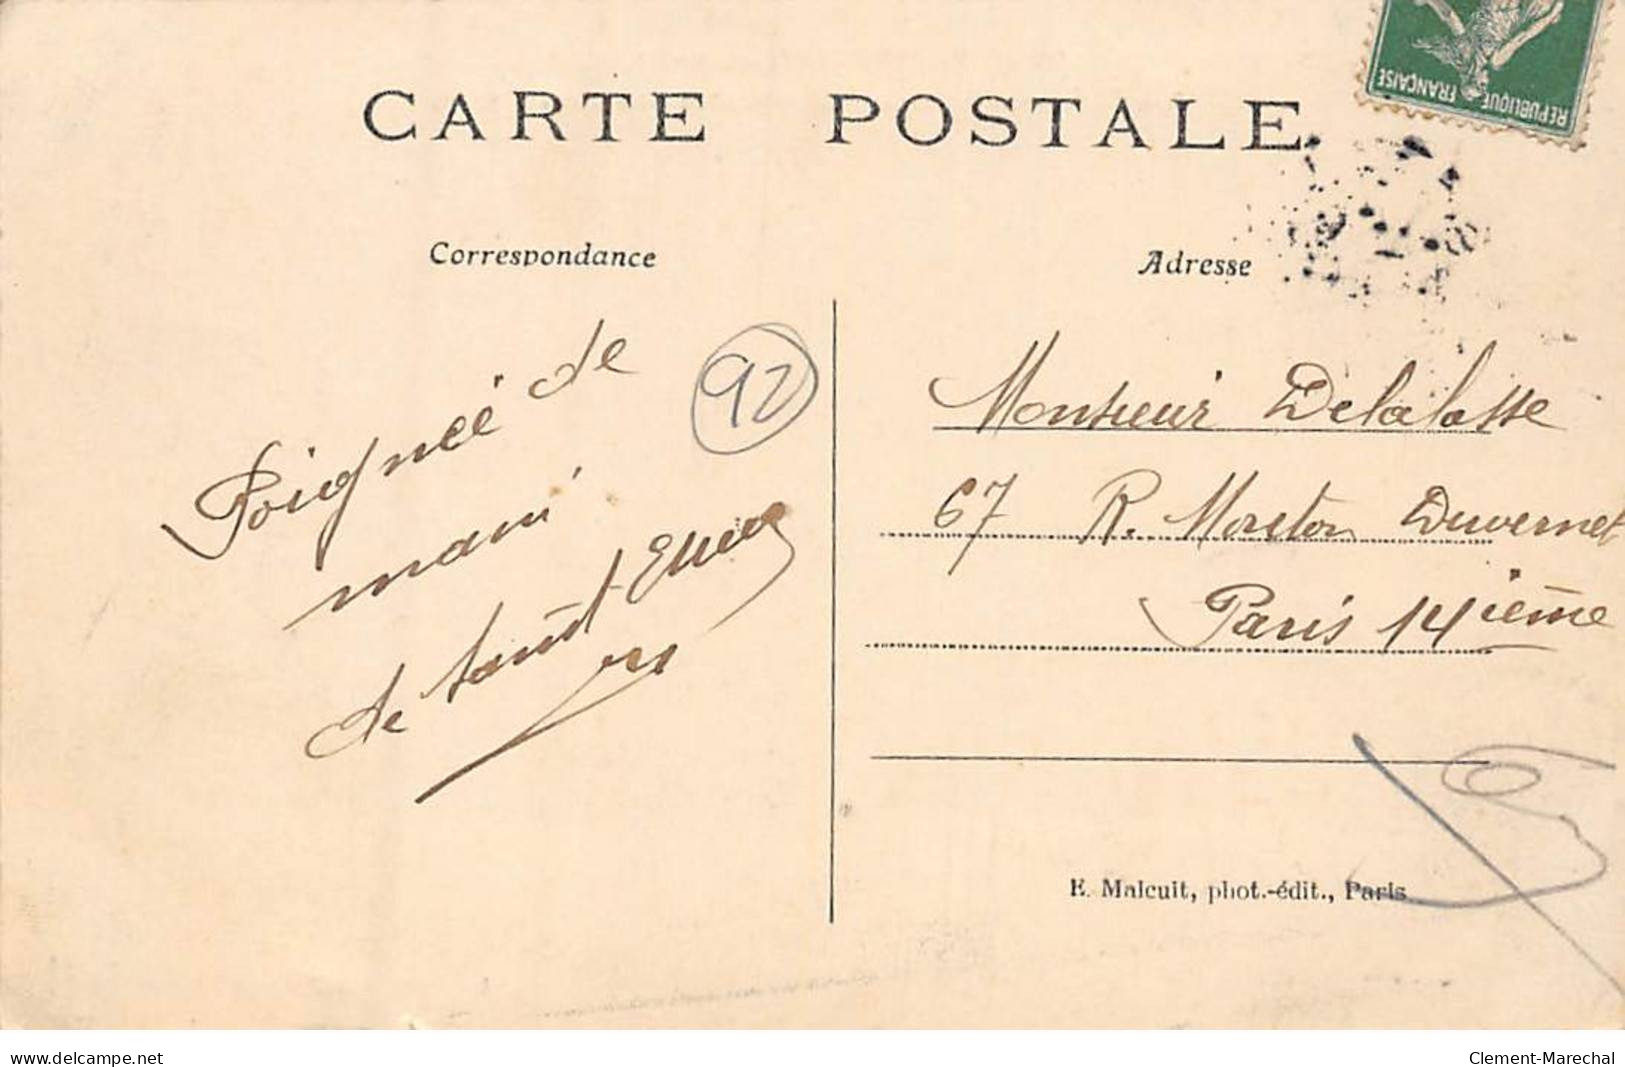 CARTE POSTALE
REPUBLIQUE FRANÇAISE
Correspondance
Adresse
92
Poignée de
main
de
Monsieur Delalosse
67 R. Moreton Duvernet
Paris 14ième
E. Malcuit, phot.-édit., Paris
www.delcampe.net
Clement-Marechal